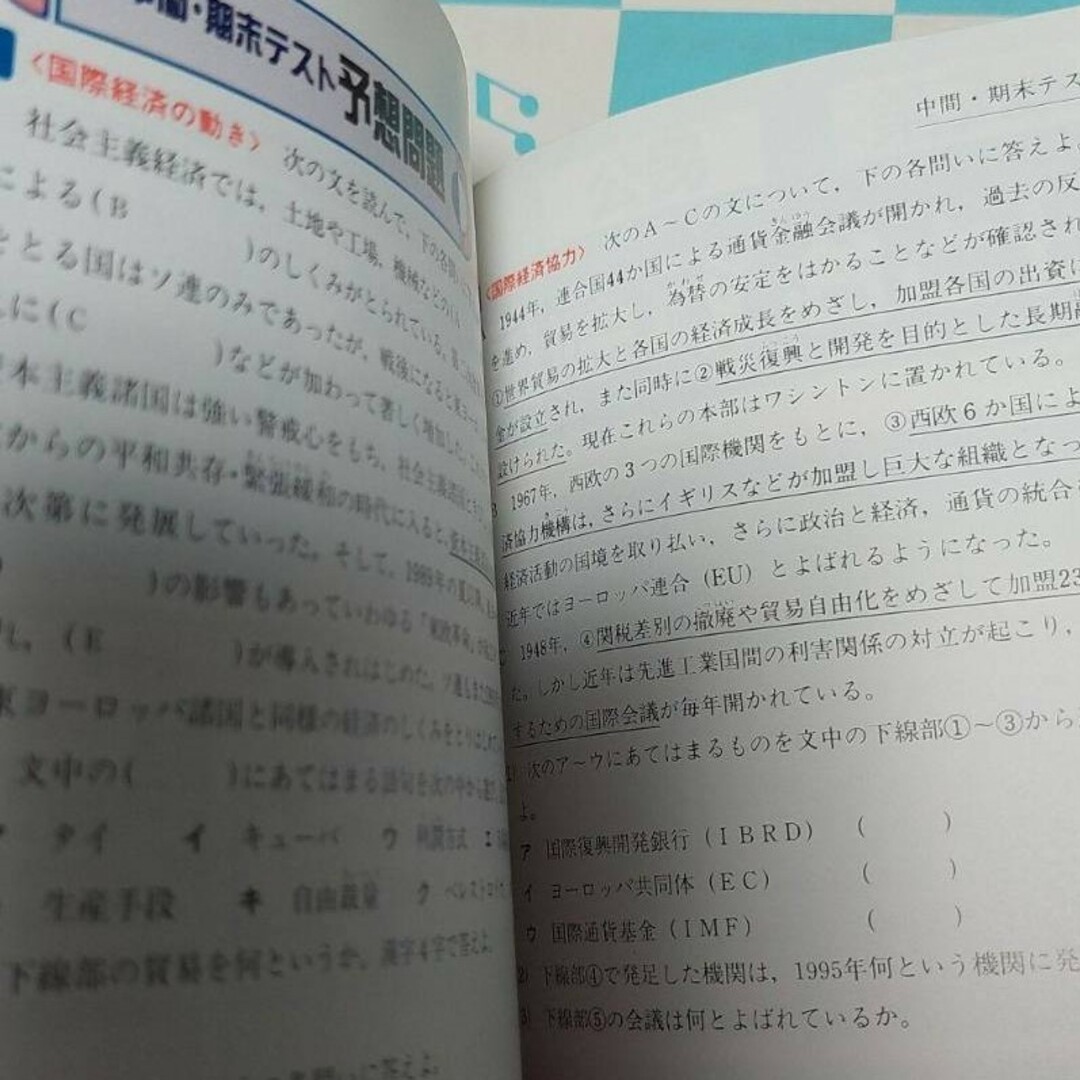 期末テスト予想問題
〈国際経済の動き〉 次の文を読んで、下の各問い
社会主義経済では、土地や工場、機械などの(A
による(B )のしくみがとられている。
をとる国はソ連のみであったが、戦後になると東ヨー
に(C )などが加わって著しく増加した。
本主義諸国は強い警戒心をもち、社会主義
からの平和共存・緊張緩和の時代に入ると、
次第に発展していった。そして、1989年の
)の影響もあっていわゆる「東欧革命」
し、(E )が導入されはじめた。ソ連も
東ヨーロッパ諸国と同様の経済のしくみをとりはじめ
文中の( )にあてはまる語句を次の中から選
ア タイ イ キューバ ウ 利潤方式 エ
生産手段 キ 自由裁量 ク ペレストロイカ
下線部の貿易を何というか、漢字4字で答えよ。
問いに答えよ。
中間・期末テス
〈国際経済協力〉 次のA～Cの文について，下の各問いに答えよ。
1944年，連合国44か国による通貨金融会議が開かれ，過去の反
を進め，貿易を拡大し，為替の安定をはかることなどが確認され
①世界貿易の拡大と各国の経済成長をめざし，加盟各国の出資に
金が設立され，また同時に②戦災復興と開発を目的とした長期
設けられた。現在これらの本部はワシントンに置かれている。
B 1967年，西欧の3つの国際機関をもとに，③西欧6か国によ
済協力機構は，さらにイギリスなどが加盟し巨大な組織となっ
経済活動の国境を取り払い，さらに政治と経済，通貨の統合
近年ではヨーロッパ連合（EU）とよばれるようになった。
C 1948年，④関税差別の撤廃や貿易自由化をめざして加盟23
た。しかし近年は先進工業国間の利害関係の対立が起こり，
するための国際会議が毎年開かれている。
次のア～ウにあてはまるものを文中の下線部①～③から
よ。
ア 国際復興開発銀行（ＩＢＲＤ） （ ）
イ ヨーロッパ共同体（ＥＣ） （ ）
ウ 国際通貨基金（ＩＭＦ） （ ）
2) 下線部④で発足した機関は，1995年何という機関に発
3) 下線部⑤の会議は何とよばれているか。